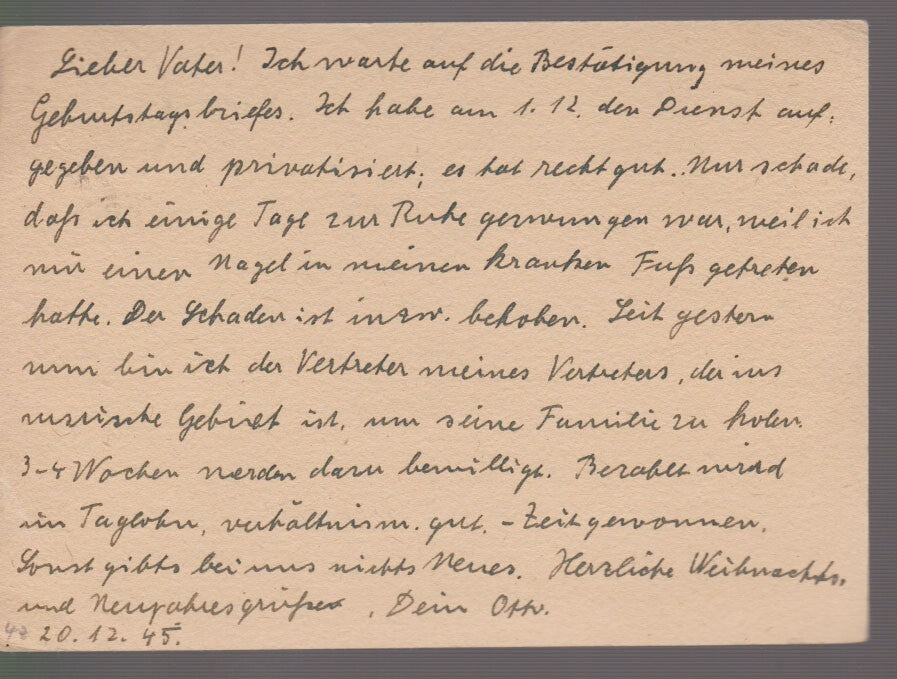 Lieber Vater! Ich warte auf die Bestätigung meines
Geburtstagsbriefes. Ich habe am 1.12. den Dienst auf-
gegeben und privatisiert; es tat recht gut. Nur schade,
daß ich einige Tage zur Ruhe gezwungen war, weil ich
mir einen Nagel in meinen kranken Fuß getreten
hatte. Der Schaden ist inzw. behoben. Seit gestern
nun bin ich der Vertreter meines Vertreters, der ins
russische Gebiet ist, um seine Familie zu holen.
3-4 Wochen werden dazu bewilligt. Bezahlt wird
im Taglohn, verhältnism. gut. - Zeit gewonnen.
Sonst gibts bei uns nichts Neues. Herzliche Weihnachts-
und Neujahrsgrüße, Dein Otto.
20.12.45.